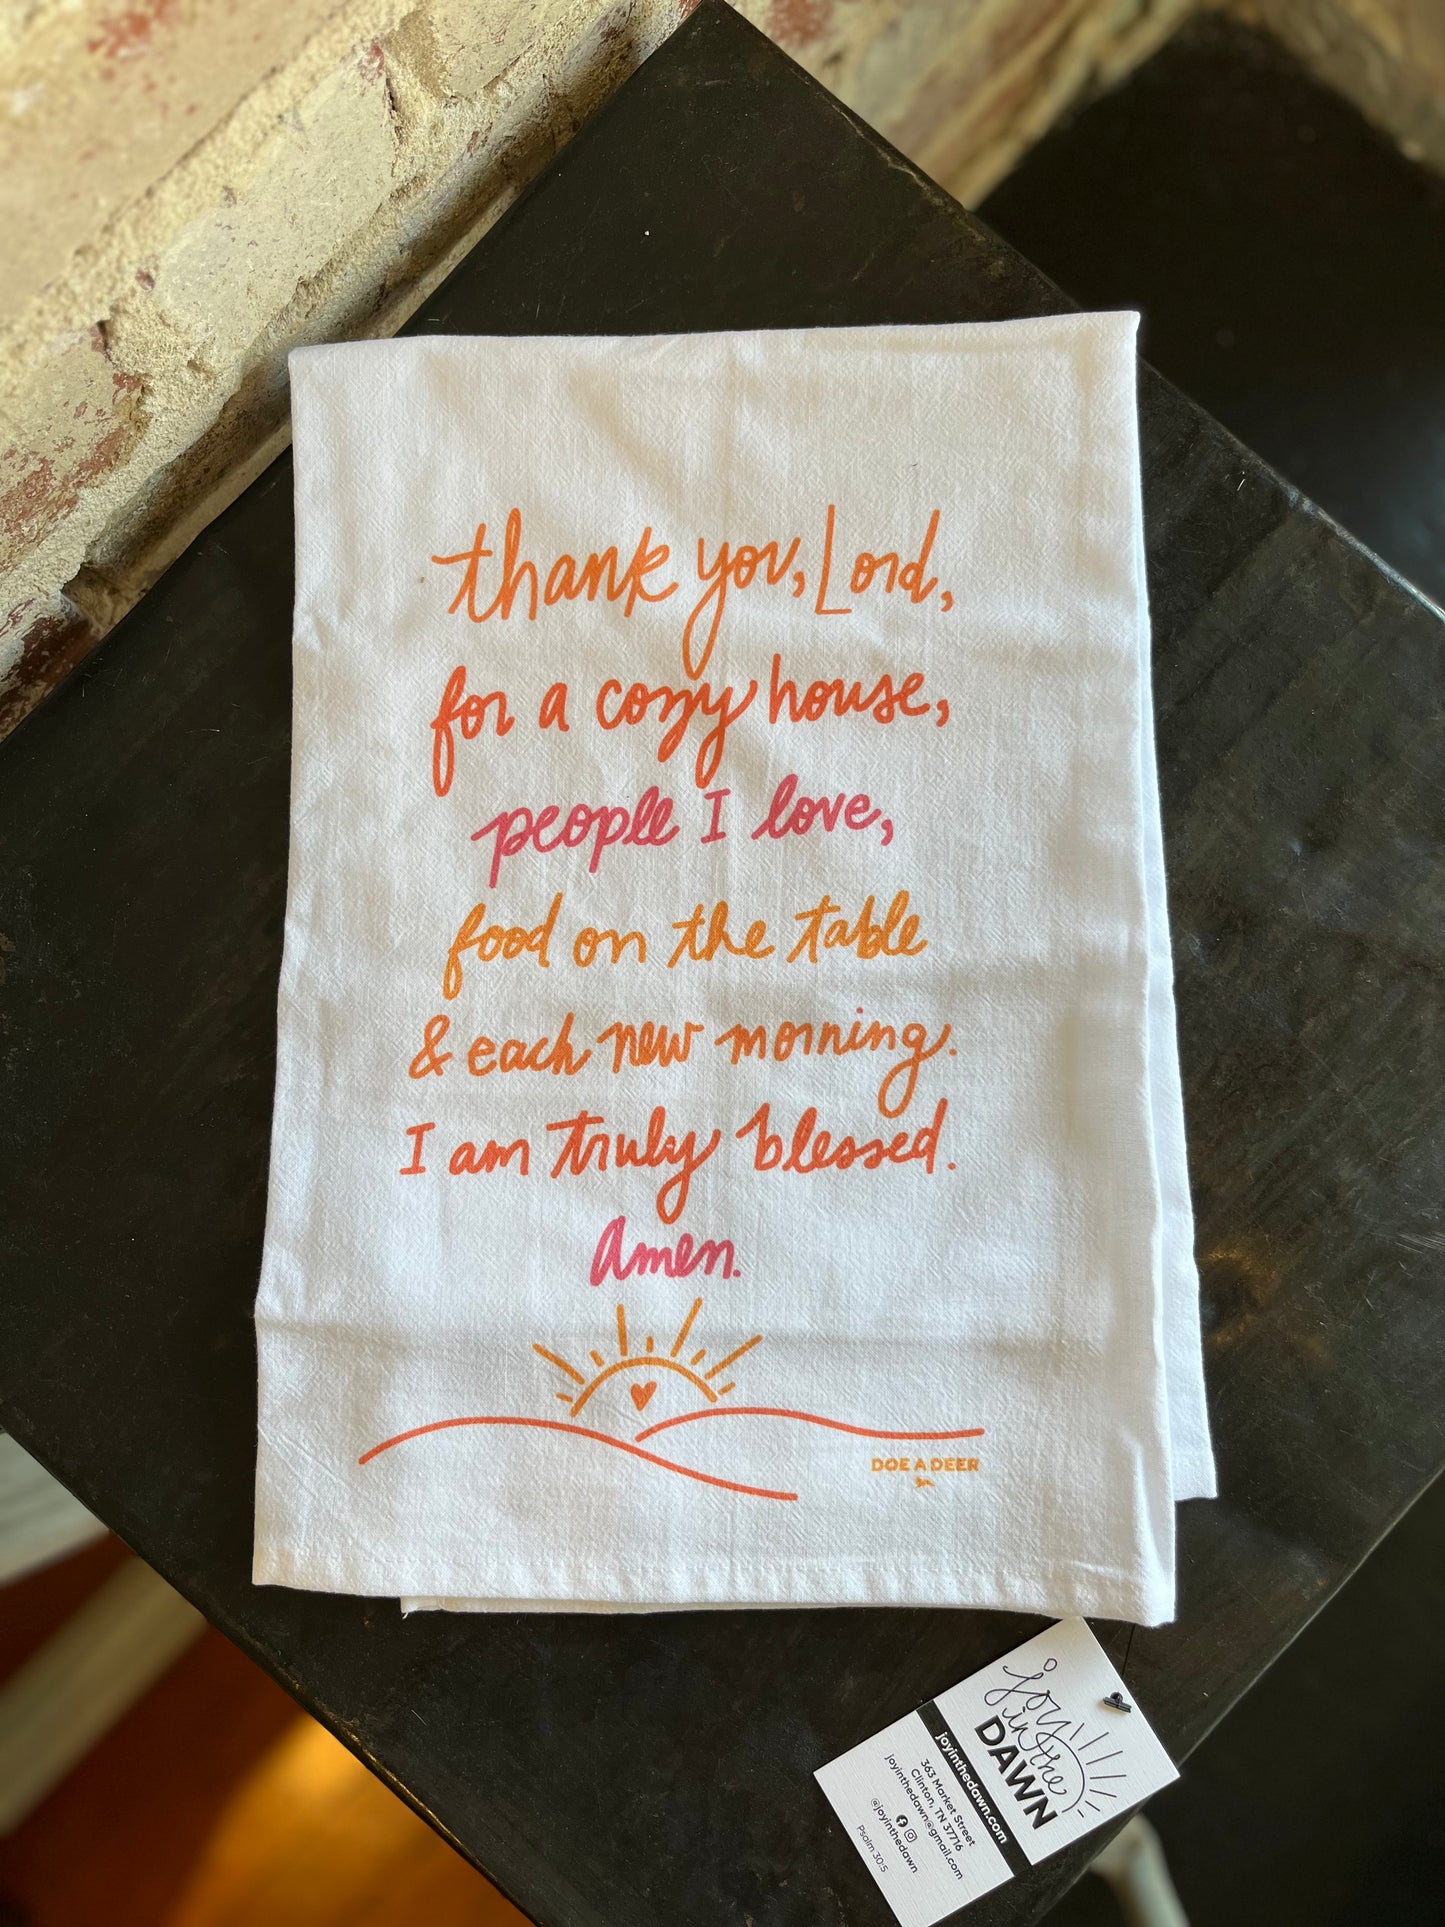 thank you, Lord,
for a cozy house,
people I love,
food on the table
& each new morning.
I am truly blessed.
Amen.
DOE A DEER
joy
in the
DAWN
joyinthedawn.com
363 Market Street
Clinton, TN 37716
joyinthedawn@gmail.com
@joyinthedawn
Psalm 30:5